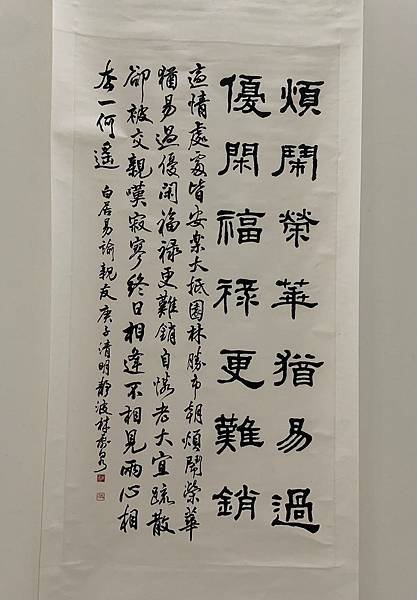 煩鬧榮華猶易過
優閑福祿更難銷
適情處處皆安樂大抵園林勝市朝煩鬧榮華
猶易過優閑福祿更難銷自憐老大宜疏散
卻被交親嘆寂寥終日相逢不相見兩心相
去一何遙 白居易諭親友庚子清明靜波林